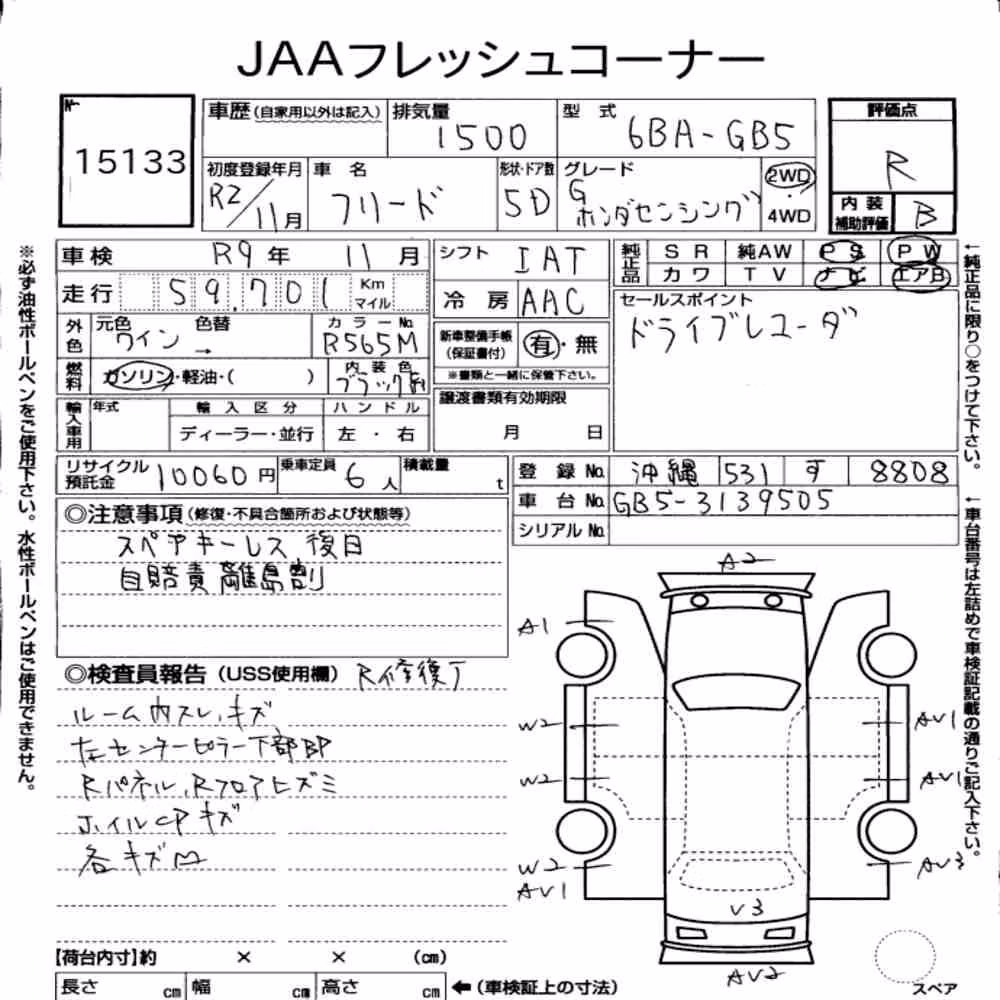 JAAフレッシュコーナー
15133
車歴(自家用以外は記入) 排気量 1500 型式 6BA-GB5
評価点 R
初度登録年月 R2/11月 車名 フリード 形状・ドア数 5D グレード G ホンダセンシング 2WD 4WD
内装補助評価 B
車検 R9年 11月
走行 59,701 Km マイル
外色 元色 ワイン 色替 → カラーNo. R565M
燃料 ガソリン・軽油・( ) 内装色 ブラック
輸入車用 年式 輸入区分 ディーラー・並行 ハンドル 左・右
シフト IAT
冷房 AAC
新車整備手帳(保証書付) 有・無
※書類と一緒に保管下さい。
譲渡書類有効期限
月 日
純正品 SR 純AW PS PW
カワ TV ナビ エアB
セールスポイント
ドライブレコーダ
リサイクル預託金 10060円 乗車定員 6人 積載量 t
登録No. 沖縄 531 す 8808
車台No. GB5-3139505
シリアルNo.
◎注意事項(修復・不具合箇所および状態等)
スペアキーレス 後日
自賠責 離島割
◎検査員報告(USS使用欄) R修復了
ルーム内スレ、キズ
左センターピラー下部BP
Rパネル、Rフロアヒズミ
ホイルCPキズ
各キズ凹
A2
A1
W2
AV1
W2
AV1
W2
AV1
AV3
V3
AV2
スペア
【荷台内寸】約 × × (cm)
長さ cm 幅 cm 高さ cm ←(車検証上の寸法)
※必ず油性ボールペンをご使用下さい。水性ボールペンはご使用できません。
←純正品に限り○をつけて下さい。
←車台番号は左詰めで車検証記載の通りご記入下さい。